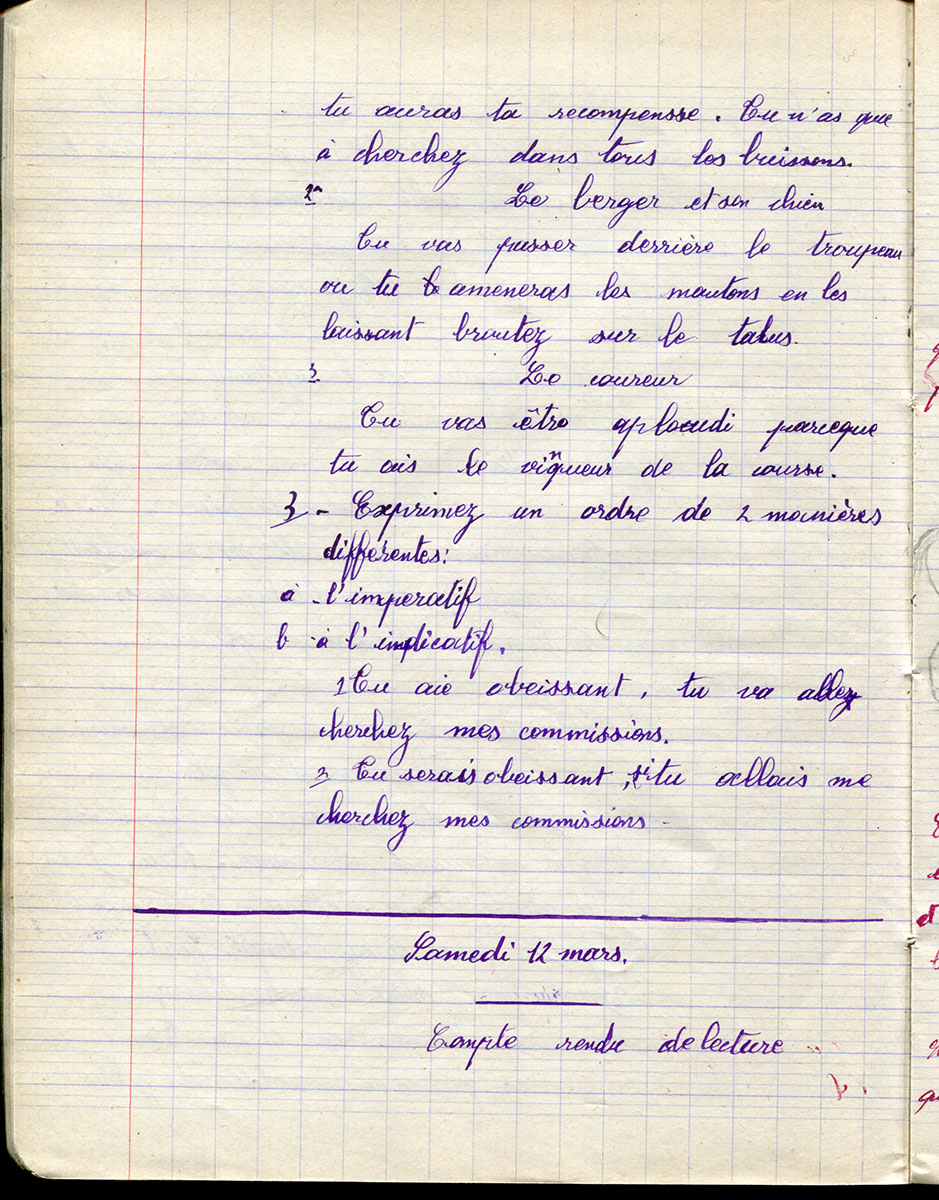 tu auras ta recompensse. Tu n'as que
à cherchez dans tous les buissons.
2°
Le berger et son chien
Tu vas passer derrière le troupeau
ou tu ameneras les moutons en les
laissant broutez sur le talus.
3
Le coureur
Tu vas être aplaudi parceque
tu ais le vinqueur de la course.
3 - Exprimez un ordre de 2 manières
différentes:
a - l'imperatif
b - à l'indicatif.
1 Tu aie obeissant, tu va allez
cherchez mes commissions.
2 Tu serais obeissant, si tu allais me
cherchez mes commissions
Samedi 12 mars.
Compte rendu de lecture